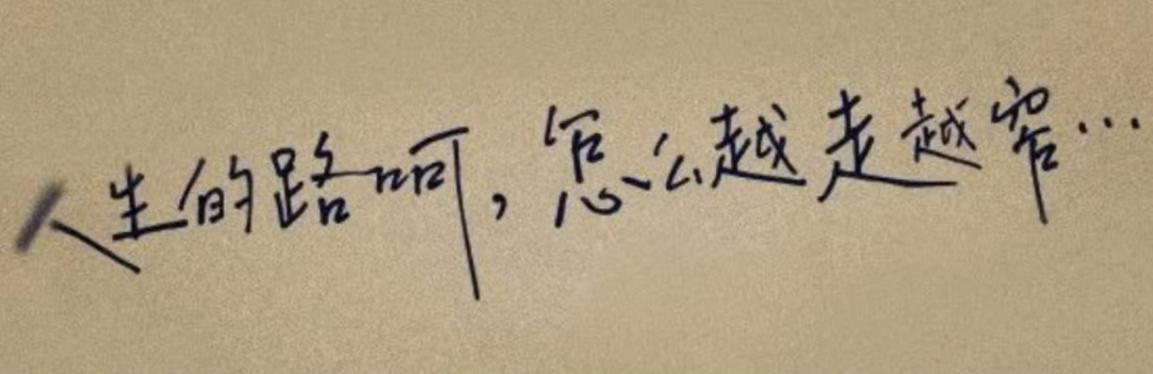 人生的路呵，怎么越走越窄…